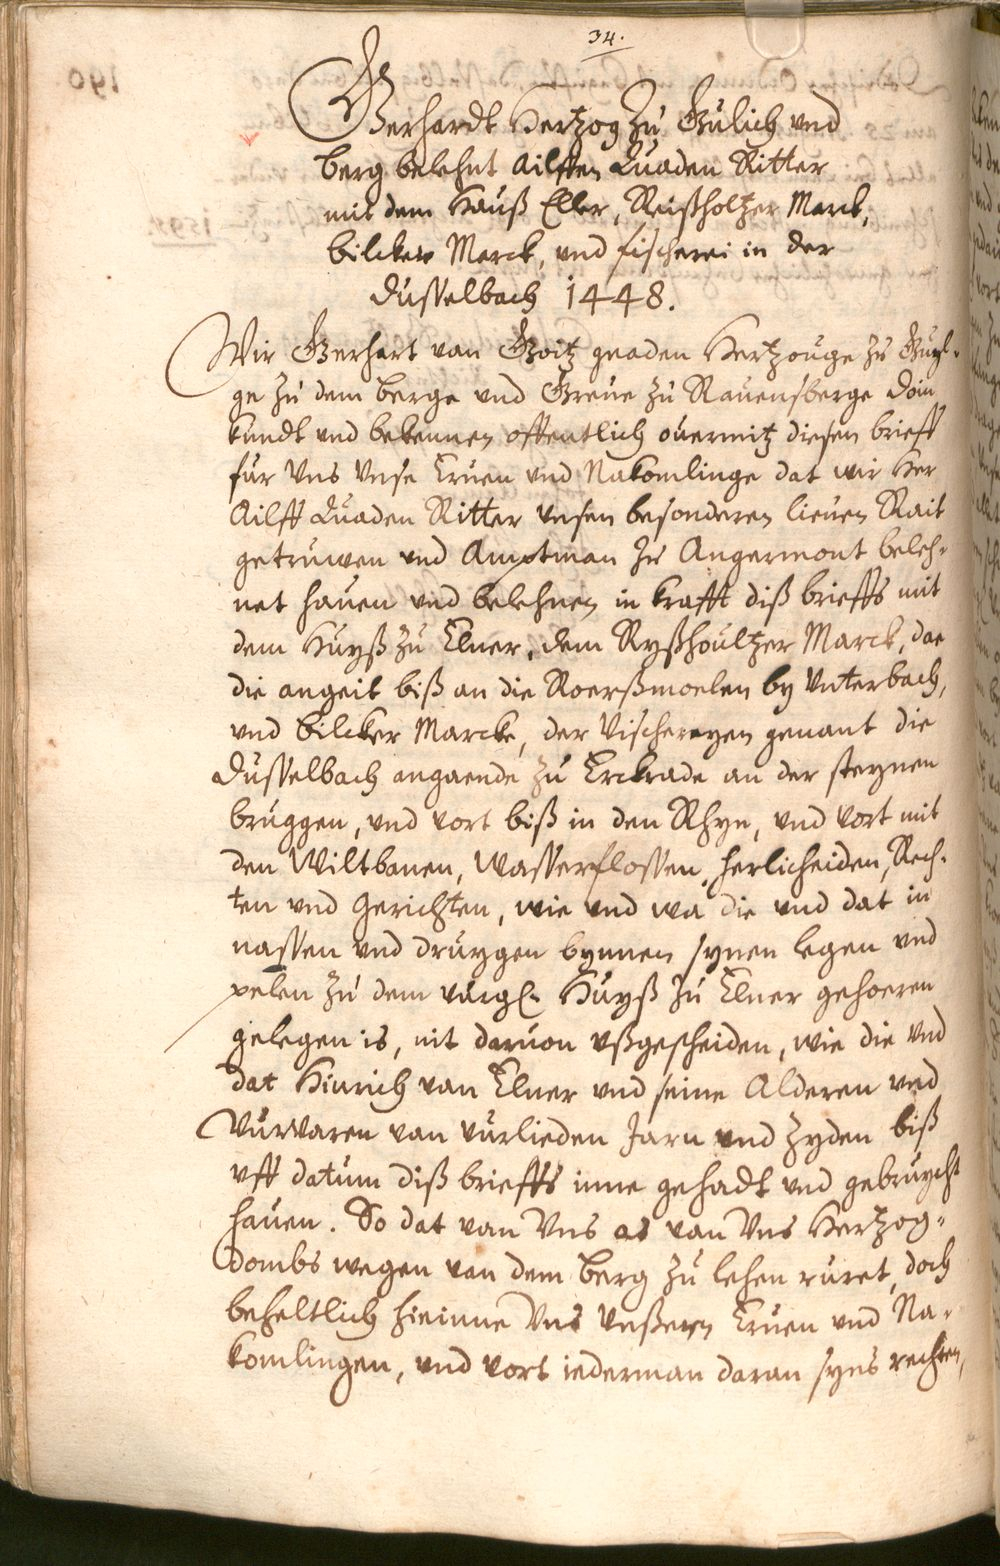 34.
Gerhardt Hertzog zu Gulich vnd
berg belehnt Ailffen Quaden Ritter
mit dem Hauß Eller, Reißholtzer Marck,
bilcker Marck, vnd fischerei in der
Dusselbach 1448.
Wir Gerhart van Goitz gnaden Hertzouge zu Guyl-
ge zu dem berge vnd Greue zu Rauensberge doin
kundt vnd bekennen offentlich ouermitz diesen brieff
fur Vns Vnse Eruen vnd Nakomlinge dat wir Her
Ailff Quaden Ritter vnsen besonderen lieuen Rait
getruwen vnd Amptman zu Angermont beleh-
net hauen vnd belehnen in krafft diß brieffs mit
dem Huyß zu Elner, dem Ryßhoultzer Marck, dae
die angeit biß an die Roerßmoelen by Vnterbach,
vnd bilcker Marcke, der Vischereyen genant die
Dusselbach angaende zu Erckrade an der steynen
bruggen, vnd vort biß in den Rhyn, vnd vort mit
den Wiltbanen, Wasserflossen, herlicheiden, Rech-
ten vnd Gerichten, wie vnd wa die vnd dat in
nassen vnd druygen bynnen synen legen vnd
pelen zu dem vurgl. Huyß zu Elner gehoeren
gelegen is, nit daruon vßgescheiden, wie die vnd
dat Hinrich van Elner vnd seine Alderen vnd
Vurvaren van vurlieden Jarn vnd Zyden biß
vff datum diß brieffs inne gehadt vnd gebruycht
hauen. So dat van Vns as van Vns Hertzog-
dombs wegen van dem berg zu lehen ruret, doch
beheltlich hieinne Vns Vnßeren Eruen vnd Na-
komlingen, vnd vort iederman daran syns rechten,